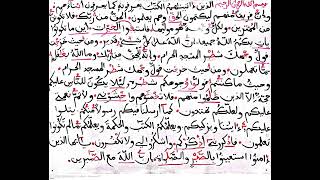 بسم الله الرحمن الرحيم الذين ءاتينهم الكتب يعرفونه كما يعرفون أبناءهم
وإن فريقا منهم ليكتمون الحق وهم يعلمون الحق من ربك فلا تكونن
من الممترين ولكل وجهة هو موليها فاستبقوا الخيرت أين ما تكونوا
يات بكم الله جميعا ان الله على كل شيء قدير ومن حيث خرجت
فول وجهك شطر المسجد الحرام وإنه للحق من ربك وما الله بغفل
عما تعملون ومن حيث خرجت فول وجهك شطر المسجد الحرام
وحيث ما كنتم فولوا وجوهكم شطره ليلا يكون للناس عليكم
حجة الا الذين ظلموا منهم فلا تخشوهم واخشوني ولأتم نعمتي
عليكم ولعلكم تهتدون كما أرسلنا فيكم رسولا منكم يتلوا
عليكم ءايتنا ويزكيكم ويعلمكم الكتب والحكمة ويعلمكم ما لم تكونوا
تعلمون فاذكروني أذكركم واشكروا لي ولا تكفرون يأيها الذين
ءامنوا استعينوا بالصبر والصلوة إن الله مع الصبرين